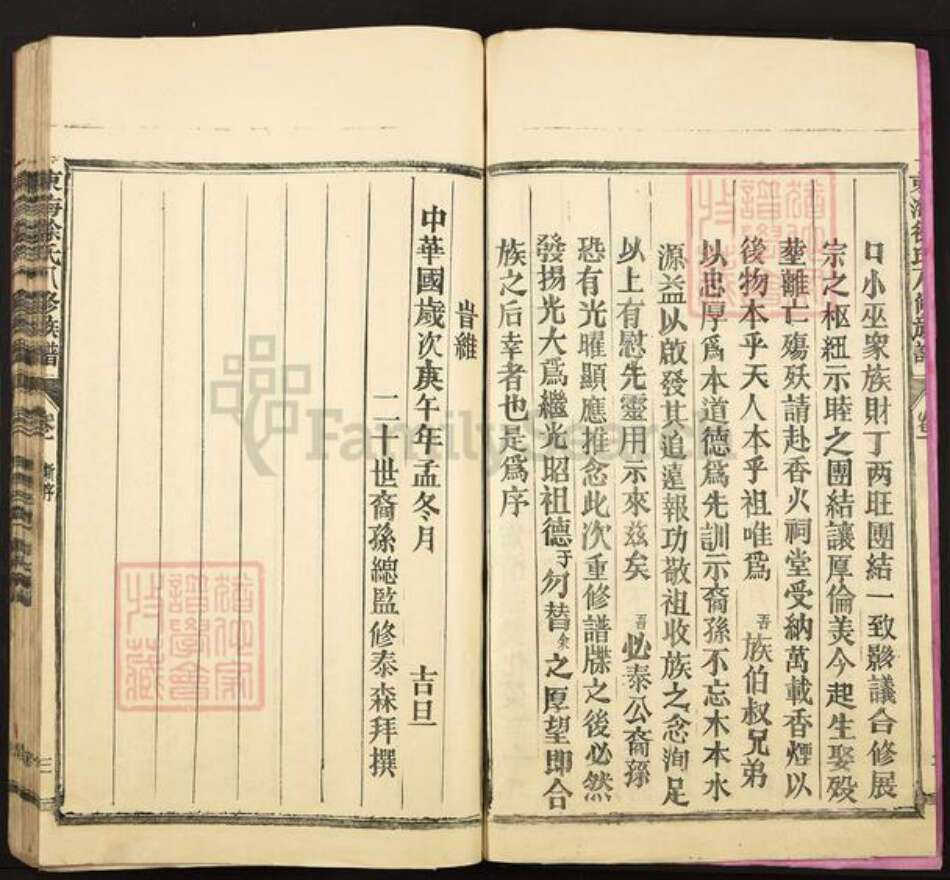 口小巫衆族財丁两旺團結一致夥議合修展
宗之枢紐示睦之團結讓厚倫美今起生娶殁
塟離亡殤殀請赴香火祠堂受納萬載香煙以
後物本乎天人本乎祖唯爲吾族伯叔兄弟
以忠厚爲本道德爲先訓示裔孫不忘木本水
源益以啟發其追遠報功敬祖收族之念洵足
以上有慰先靈用示來兹矣吾必泰公裔孫
恐有光曜顯應推念此次重修譜牒之後必然
發揚光大爲繼光昭祖德于勿替余之厚望即合
族之后幸者也是爲序
旹維
中華國歲次庚午年孟冬月吉旦
二十世裔孫總監修泰森拜撰
東海徐氏八修族譜
卷一
新序
三
東海徐氏八修族譜
卷一
FamilySearch
譜學會
收藏